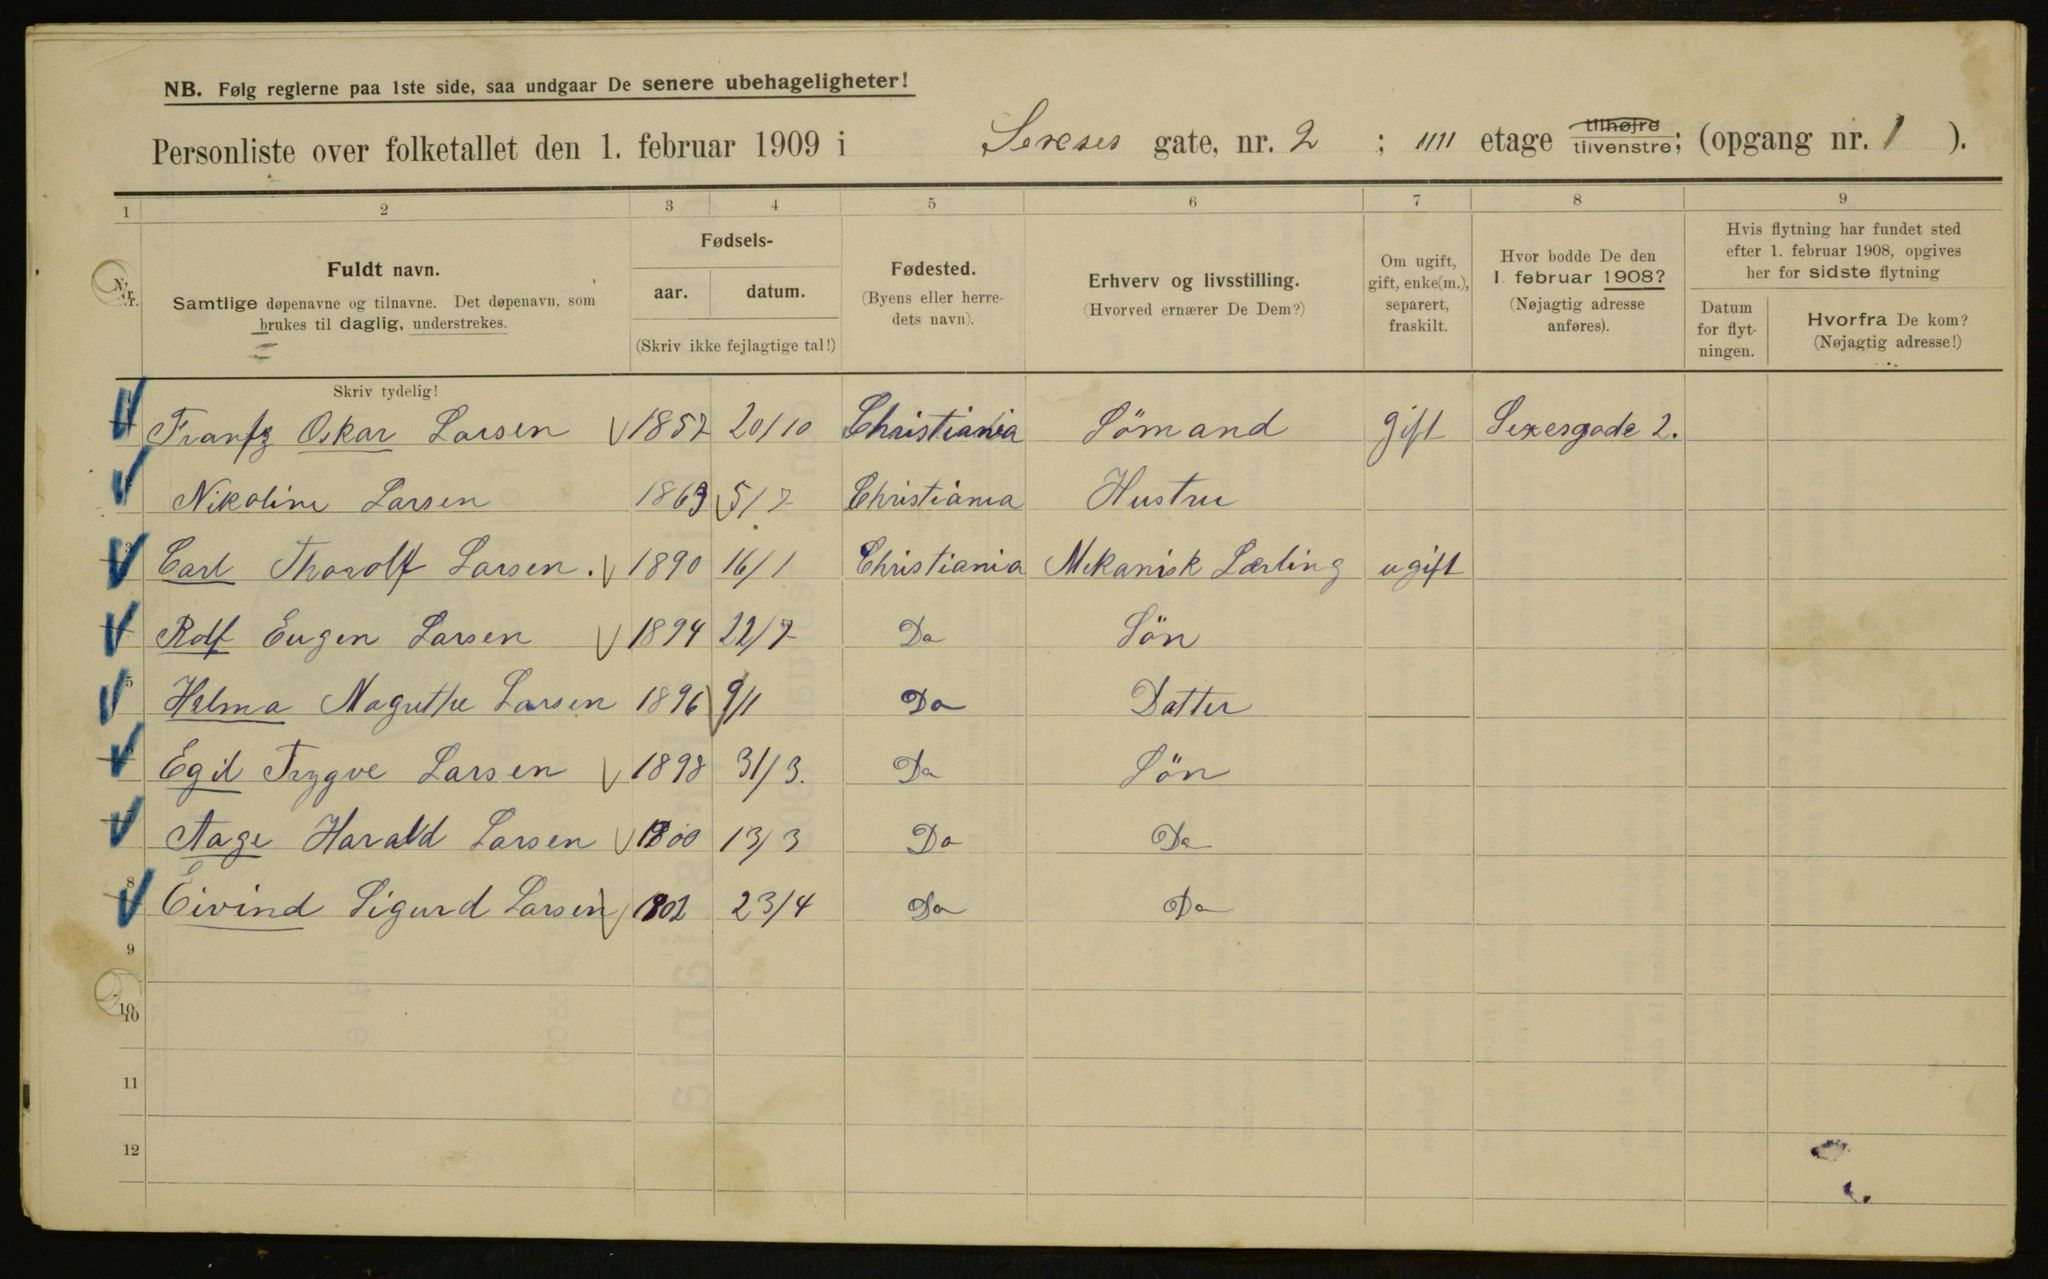 NB. Følg reglerne paa 1ste side, saa undgaar De senere ubehageligheter!
Personliste over folketallet den 1. februar 1909 i Sexeses gate, nr. 2 ; 1111 etage tilhøjre tilvenstre; (opgang nr. 1 ).
1 2 3 4 5 6 7 8 9
Nr. Fuldt navn. Samtlige døpenavne og tilnavne. Det døpenavn, som brukes til daglig, understrekes.
Fødsels- aar. datum. (Skriv ikke fejlagtige tal!)
Fødested. (Byens eller herredets navn).
Erhverv og livsstilling. (Hvorved ernærer De Dem?)
Om ugift, gift, enke(m.), separert, fraskilt.
Hvor bodde De den 1. februar 1908? (Nøjagtig adresse anføres).
Hvis flytning har fundet sted efter 1. februar 1908, opgives her for sidste flytning
Datum for flytningen. Hvorfra De kom? (Nøjagtig adresse!)
Skriv tydelig!
Frantz Oskar Larsen 1857 20/10 Christiania Sömand gift Sexesgade 2.
Nikoline Larsen 1863 5/7 Christiania Hustru
3 Carl Thorolf Larsen. 1890 16/1 Christiania Mekanisk Lærling ugift
Rolf Eugen Larsen 1894 22/7 Do Sön
5 Helma Magrethe Larsen 1896 9/1 Do Datter
Egil Trygve Larsen 1898 31/3. Do Sön
Aage Harald Larsen 1900 13/3 Do Do
8 Eivind Sigurd Larsen 1902 23/4 Do Do
9
10
10
11
12